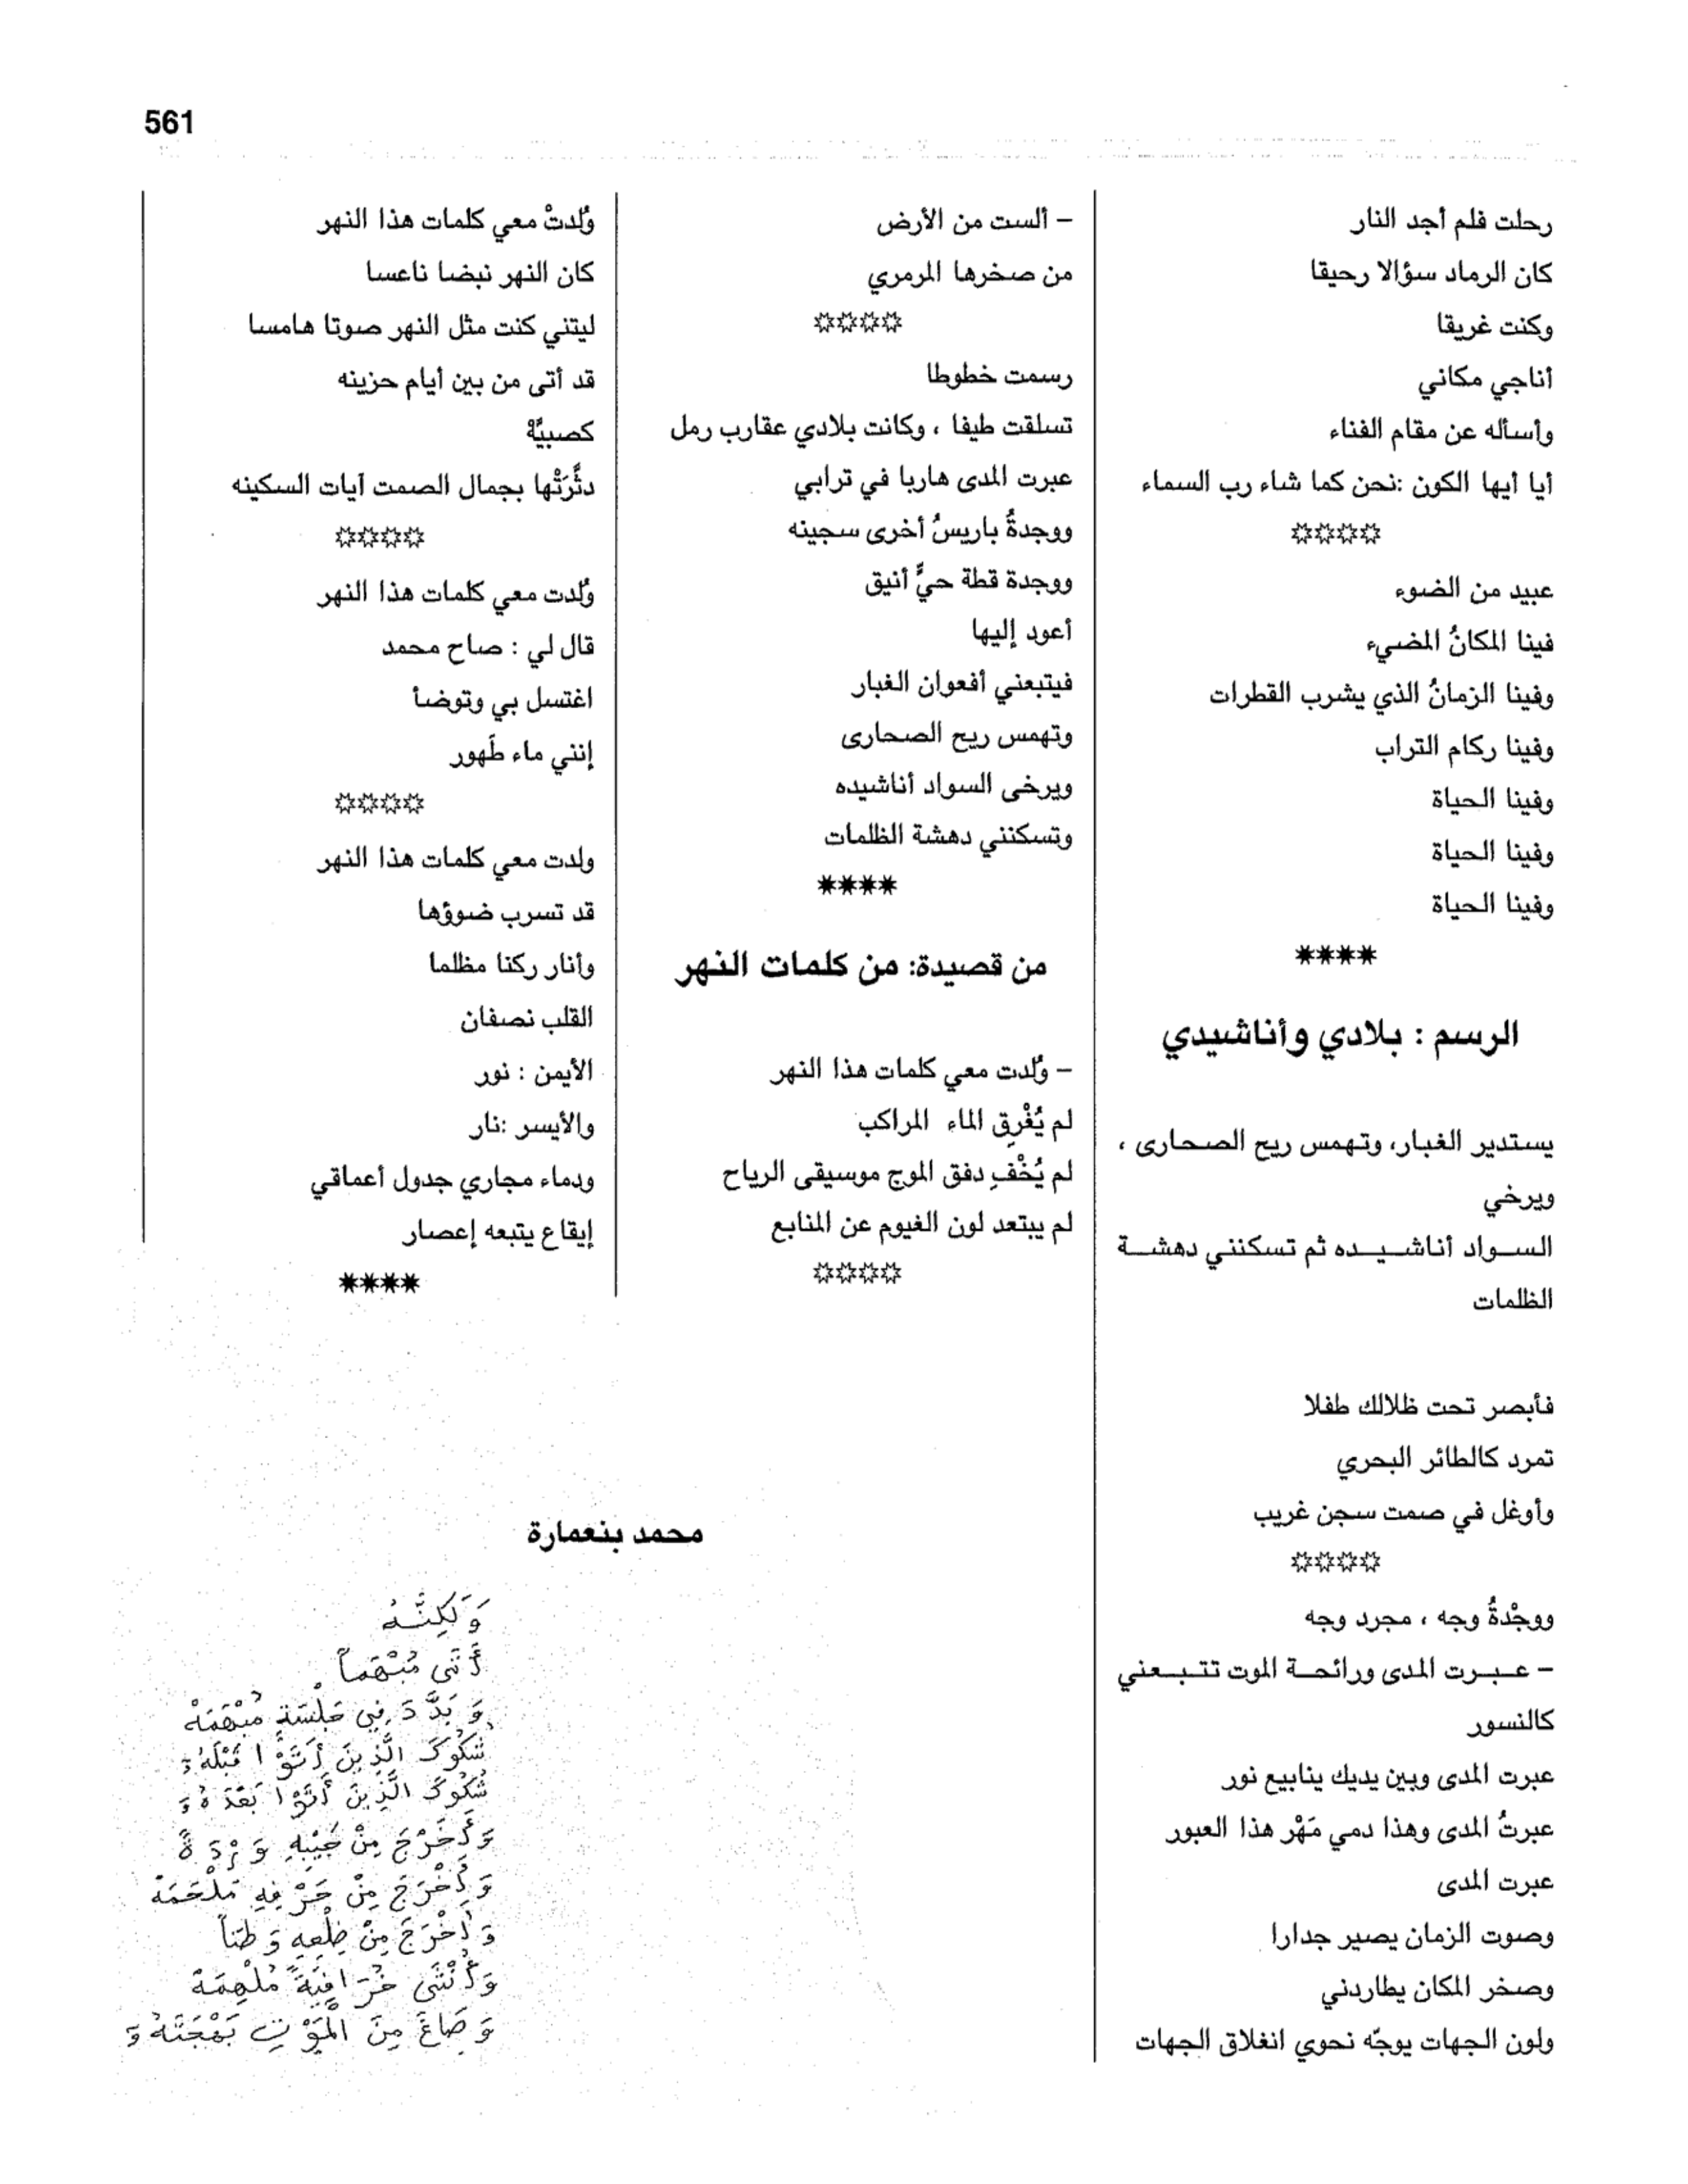 561
رحلت فلم أجد النار
كان الرماد سؤالا رحيقا
وكنت غريقا
أناجي مكاني
وأسأله عن مقام الفناء
أيا أيها الكون :نحن كما شاء رب السماء
☼☼☼☼
عبيد من الضوء
فينا المكانُ المضيء
وفينا الزمانُ الذي يشرب القطرات
وفينا ركام التراب
وفينا الحياة
وفينا الحياة
وفينا الحياة
****
الرسم : بلادي وأناشيدي
يستدير الغبار، وتهمس ريح الصحارى ،
ويرخي
السواد أناشيده ثم تسكنني دهشة
الظلمات
فأبصر تحت ظلالك طفلا
تمرد كالطائر البحري
وأوغل في صمت سجن غريب
☼☼☼☼
ووجْدةُ وجه ، مجرد وجه
– عبرت المدى ورائحة الموت تتبعني
كالنسور
عبرت المدى وبين يديك ينابيع نور
عبرتُ المدى وهذا دمي مَهْر هذا العبور
عبرت المدى
وصوت الزمان يصير جدارا
وصخر المكان يطاردني
ولون الجهات يوجّه نحوي انغلاق الجهات
– ألست من الأرض
من صخرها المرمري
☼☼☼☼
رسمت خطوطا
تسلقت طيفا ، وكانت بلادي عقارب رمل
عبرت المدى هاربا في ترابي
ووجدةُ باريسُ أخرى سجينه
ووجدة قطة حيٍّ أنيق
أعود إليها
فيتبعني أفعوان الغبار
وتهمس ريح الصحارى
ويرخى السواد أناشيده
وتسكنني دهشة الظلمات
****
من قصيدة: من كلمات النهر
– وُلدت معي كلمات هذا النهر
لم يُغْرِق الماء المراكب
لم يُخْفِ دفق الموج موسيقى الرياح
لم يبتعد لون الغيوم عن المنابع
☼☼☼☼
وُلدتْ معي كلمات هذا النهر
كان النهر نبضا ناعسا
ليتني كنت مثل النهر صوتا هامسا
قد أتى من بين أيام حزينه
كصبيَّهْ
دثَّرَتْها بجمال الصمت آيات السكينه
☼☼☼☼
وُلدت معي كلمات هذا النهر
قال لي : صاح محمد
اغتسل بي وتوضأ
إنني ماء طَهور
☼☼☼☼
ولدت معي كلمات هذا النهر
قد تسرب ضوؤها
وأنار ركنا مظلما
القلب نصفان
الأيمن : نور
والأيسر :نار
ودماء مجاري جدول أعماقي
إيقاع يتبعه إعصار
****
محمد بنعمارة
وَلَكِنَّهُ
أَتَى مُبْهَماً
وَبَدَّدَ فِي جَلْسَةٍ مُبْهَمَهْ
شُكُوكَ الَّذِينَ أَتَوْا قَبْلَهُ
شُكُوكَ الَّذِينَ أَتَوْا بَعْدَهُ
وَأَخْرَجَ مِنْ جَيْبِهِ وَرْدَةً
وَأَخْرَجَ مِنْ حَرْفِهِ مَلْحَمَهْ
وَأَخْرَجَ مِنْ ضِلْعِهِ وَطَناً
وَأُنْثَى خُرَافِيَّةً مُلْهِمَهْ
وَصَاغَ مِنَ الْمَوْتِ بَهْجَتَهُ